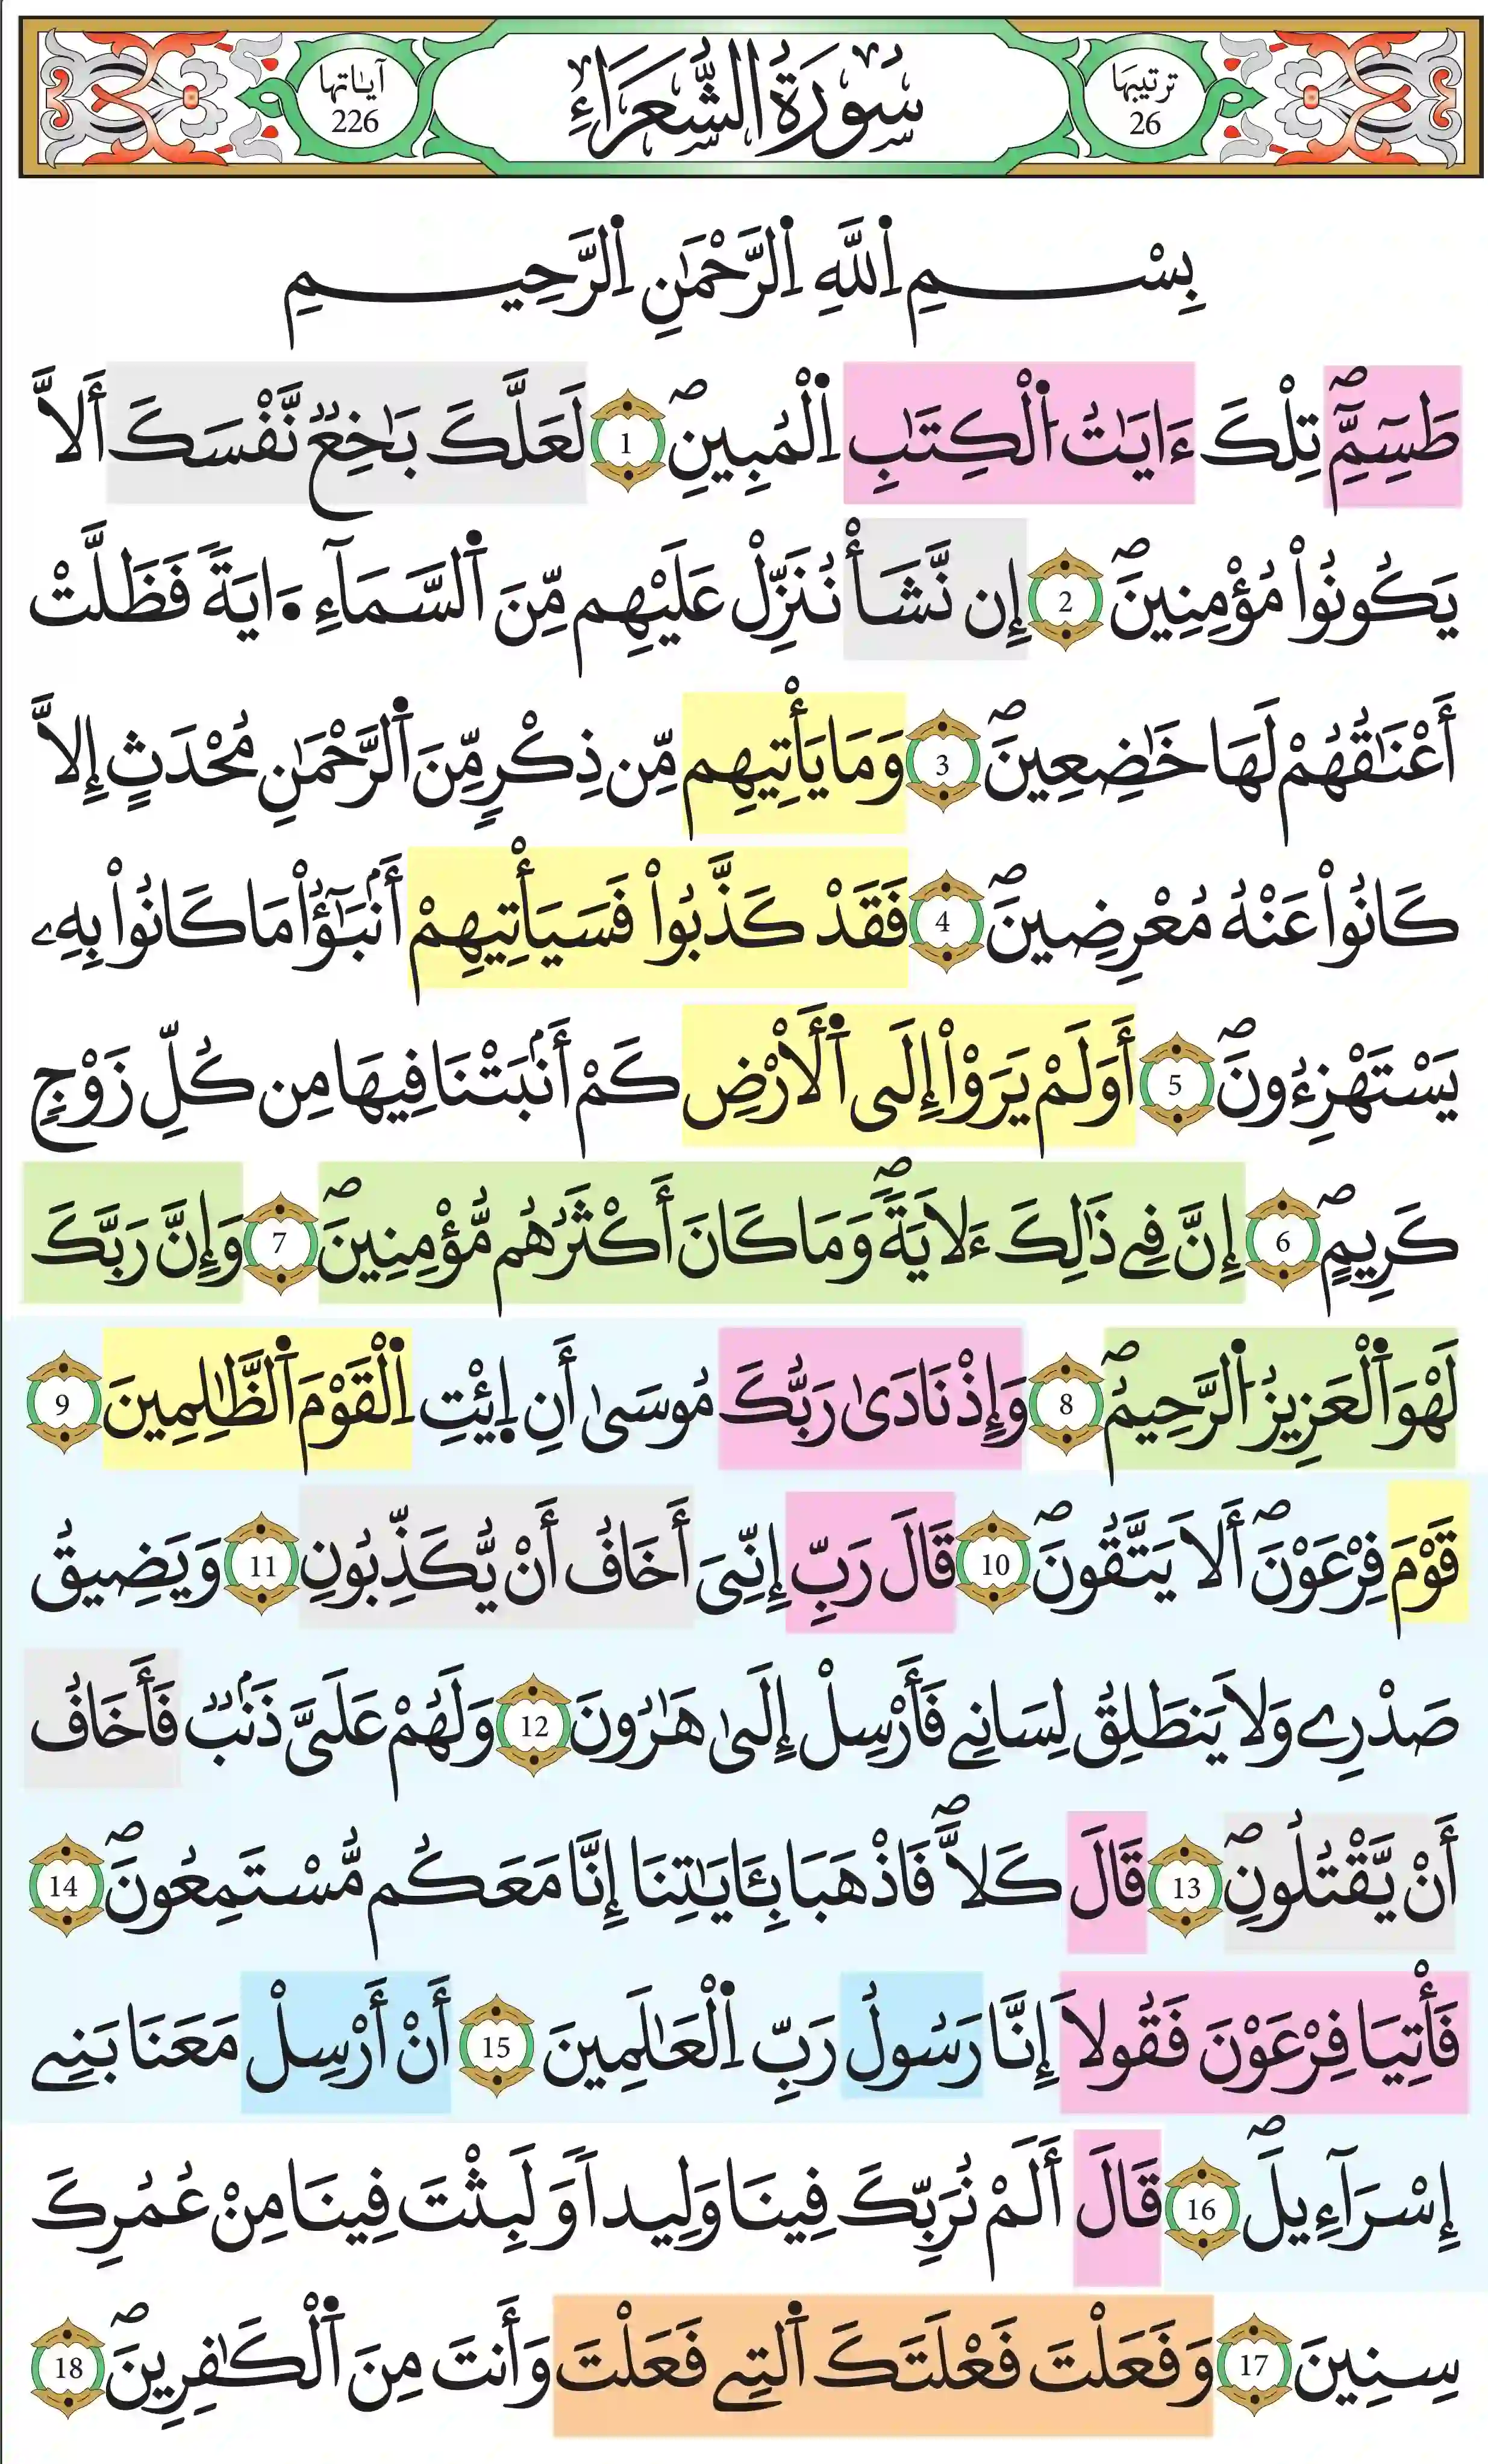 ترتيبها 26
سُورَةُ الشُّعَرَاءِ
آياتها 226
بِسْمِ اِ۬للَّهِ اِ۬لرَّحْمَٰنِ اِ۬لرَّحِيمِ
طَسِٓمِّٓۖ تِلْكَ ءَايَٰتُ اُ۬لْكِتَٰبِ اِ۬لْمُبِينِۖ 1 لَعَلَّكَ بَٰخِعٞ نَّفْسَكَ أَلَّا
يَكُونُواْ مُؤْمِنِينَۖ 2 إِن نَّشَأْ نُنَزِّلْ عَلَيْهِم مِّنَ اَ۬لسَّمَآءِ ا۪يَةٗ فَظَلَّتْ
أَعْنَٰقُهُمْ لَهَا خَٰضِعِينَۖ 3 وَمَا يَأْتِيهِم مِّن ذِكْرٖ مِّنَ اَ۬لرَّحْمَٰنِ مُحْدَثٍ إِلَّا
كَانُواْ عَنْهُ مُعْرِضِينَۖ 4 فَقَدْ كَذَّبُواْ فَسَيَأْتِيهِمْ أَنۢبَٰٓؤُاْ مَا كَانُواْ بِهِۦ
يَسْتَهْزِءُونَۖ 5 أَوَلَمْ يَرَوِاْ اِلَى اَ۬لَارْضِ كَمَ اَنۢبَتْنَا فِيهَا مِن كُلِّ زَوْجٖ
كَرِيمٍۖ 6 إِنَّ فِے ذَٰلِكَ ءَلَايَةٗۖ وَمَا كَانَ أَكْثَرُهُم مُّؤْمِنِينَۖ 7 وَإِنَّ رَبَّكَ
لَهْوَ اَ۬لْعَزِيزُ اُ۬لرَّحِيمُۖ 8 وَإِذْ نَادَىٰ رَبُّكَ مُوسَىٰ أَنِ اِ۪ئْتِ اِ۬لْقَوْمَ اَ۬لظَّٰلِمِينَ 9
قَوْمَ فِرْعَوْنَۖ أَلَا يَتَّقُونَۖ 10 قَالَ رَبِّ إِنِّيَ أَخَافُ أَنْ يُّكَذِّبُونِ 11 وَيَضِيقُ
صَدْرِے وَلَا يَنطَلِقُ لِسَانِے فَأَرْسِلْ إِلَىٰ هَٰرُونَ 12 وَلَهُمْ عَلَيَّ ذَنۢبٞ فَأَخَافُ
أَنْ يَّقْتُلُونِۖ 13 قَالَ كَلَّاۖ فَاذْهَبَا بِـَٔايَٰتِنَا إِنَّا مَعَكُم مُّسْتَمِعُونَۖ 14
فَأْتِيَا فِرْعَوْنَ فَقُولَا إِنَّا رَسُولُ رَبِّ اِ۬لْعَٰلَمِينَ 15 أَنْ أَرْسِلْ مَعَنَا بَنِے
إِسْرَآءِيلَۖ 16 قَالَ أَلَمْ نُرَبِّكَ فِينَا وَلِيداٗ وَلَبِثْتَ فِينَا مِنْ عُمُرِكَ
سِنِينَ 17 وَفَعَلْتَ فَعْلَتَكَ اَ۬لتِے فَعَلْتَ وَأَنتَ مِنَ اَ۬لْكَٰفِرِينَۖ 18